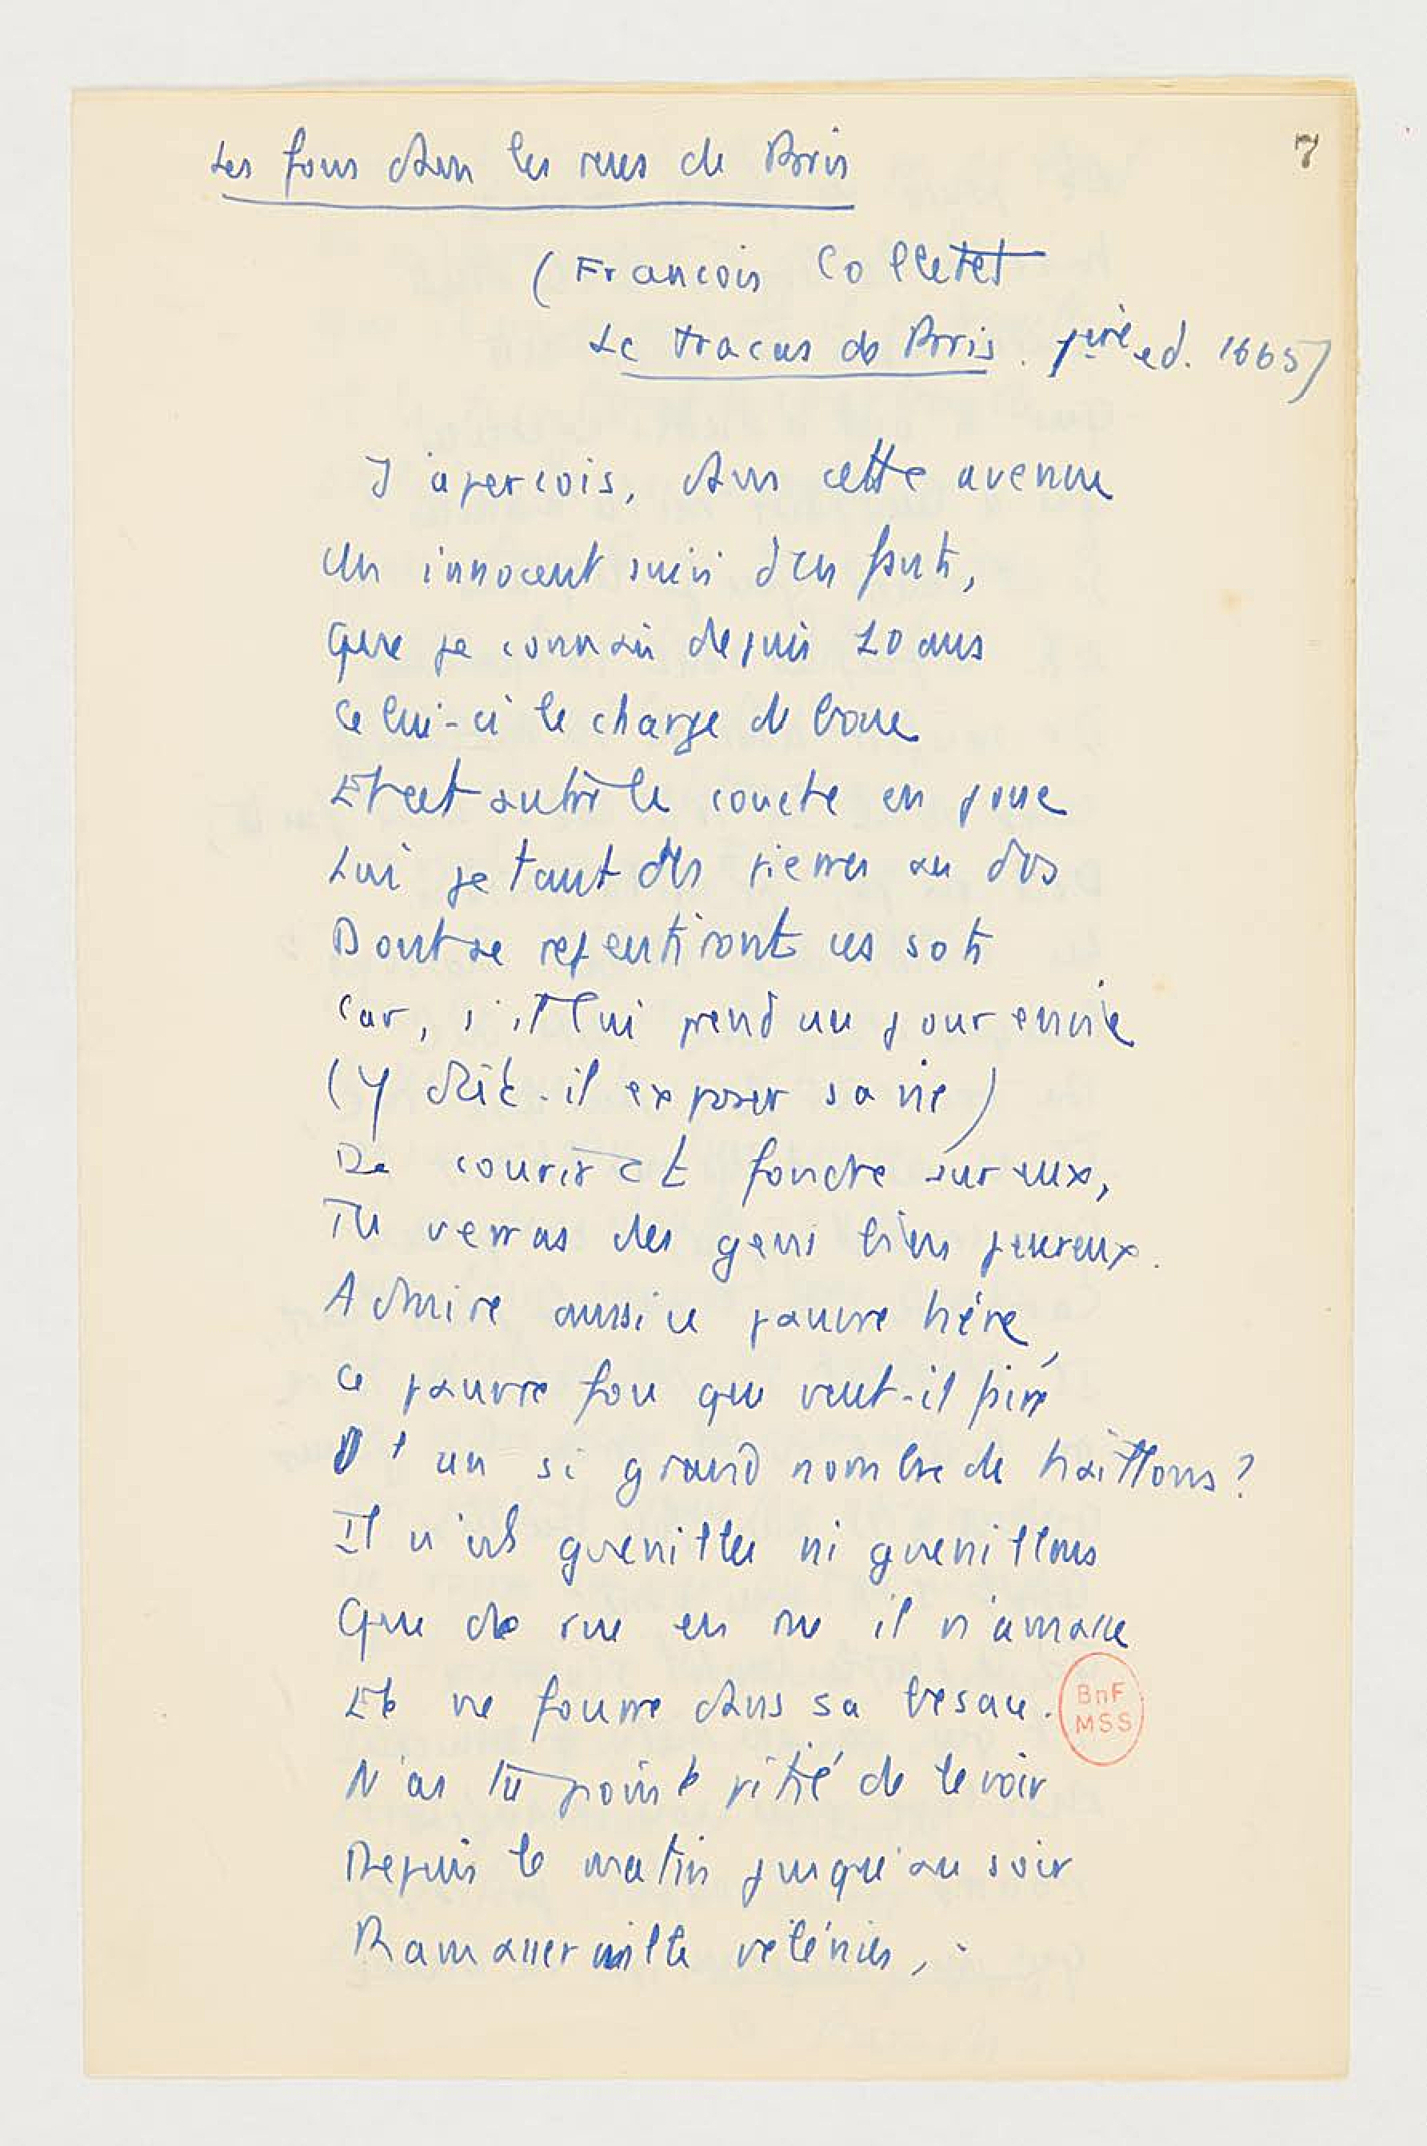 Les fous dans les rues de Paris
7
(François Colletet
Le tracas de Paris. 1ère ed. 1665)
J'aperçois, dans cette avenue
Un innocent suivi d'enfants,
Que je connais depuis 20 ans
Celui-ci le charge de boue
Et cet autre le couche en joue
Lui jetant des pierres au dos
Dont se repentiront ces sots
Car, s'il lui prend un jour envie
(Y dût-il exposer sa vie)
De courir et fondre sur eux,
Tu verras des gens bien peureux.
Admire aussi ce pauvre hère,
Ce pauvre fou que veut-il faire
D'un si grand nombre de haillons?
Il n'est guenilles ni guenillons
Que de rue en rue il n'amasse
Et ne fourre dans sa besace.
BnF
MSS
N'as tu point pitié de le voir
Depuis le matin jusqu'au soir
Ramasser mille veténies,